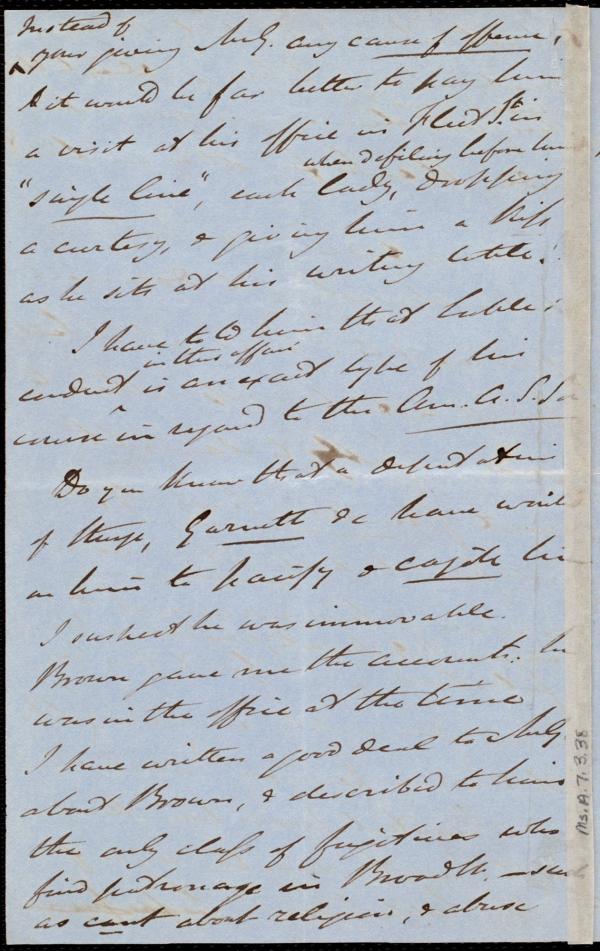 Instead of
your giving Mr G. any cause of offence,
& it would be far better to pay him
a visit at his office in Fleet St. in
when defiling before him
"single line", each lady, dropping
a curtesy & giving him a Kiss
as he sits at his writing table.
I have told him that
in this affair
conduct is an exact type of his
course in regard to the Am. A. S. So
Do you know that a deputation
of Sturge, Garnett &c have waited
on him to pacify & cajole him
I suspect he was immovable.
Brown gave me the account: he
was in the office at the time
I have written a good deal to Mr G.
about Brown, & described to him
the only class of fugitives who
find patronage in Broad St. — such
as cant about religion, & abuse
Ms.A.7.3.38